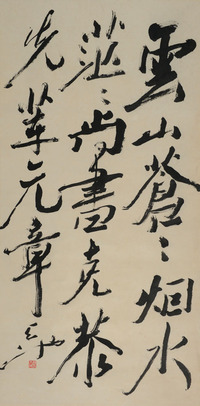 雲山蒼〻烟水
茫〻尚書克恭
先輩元章